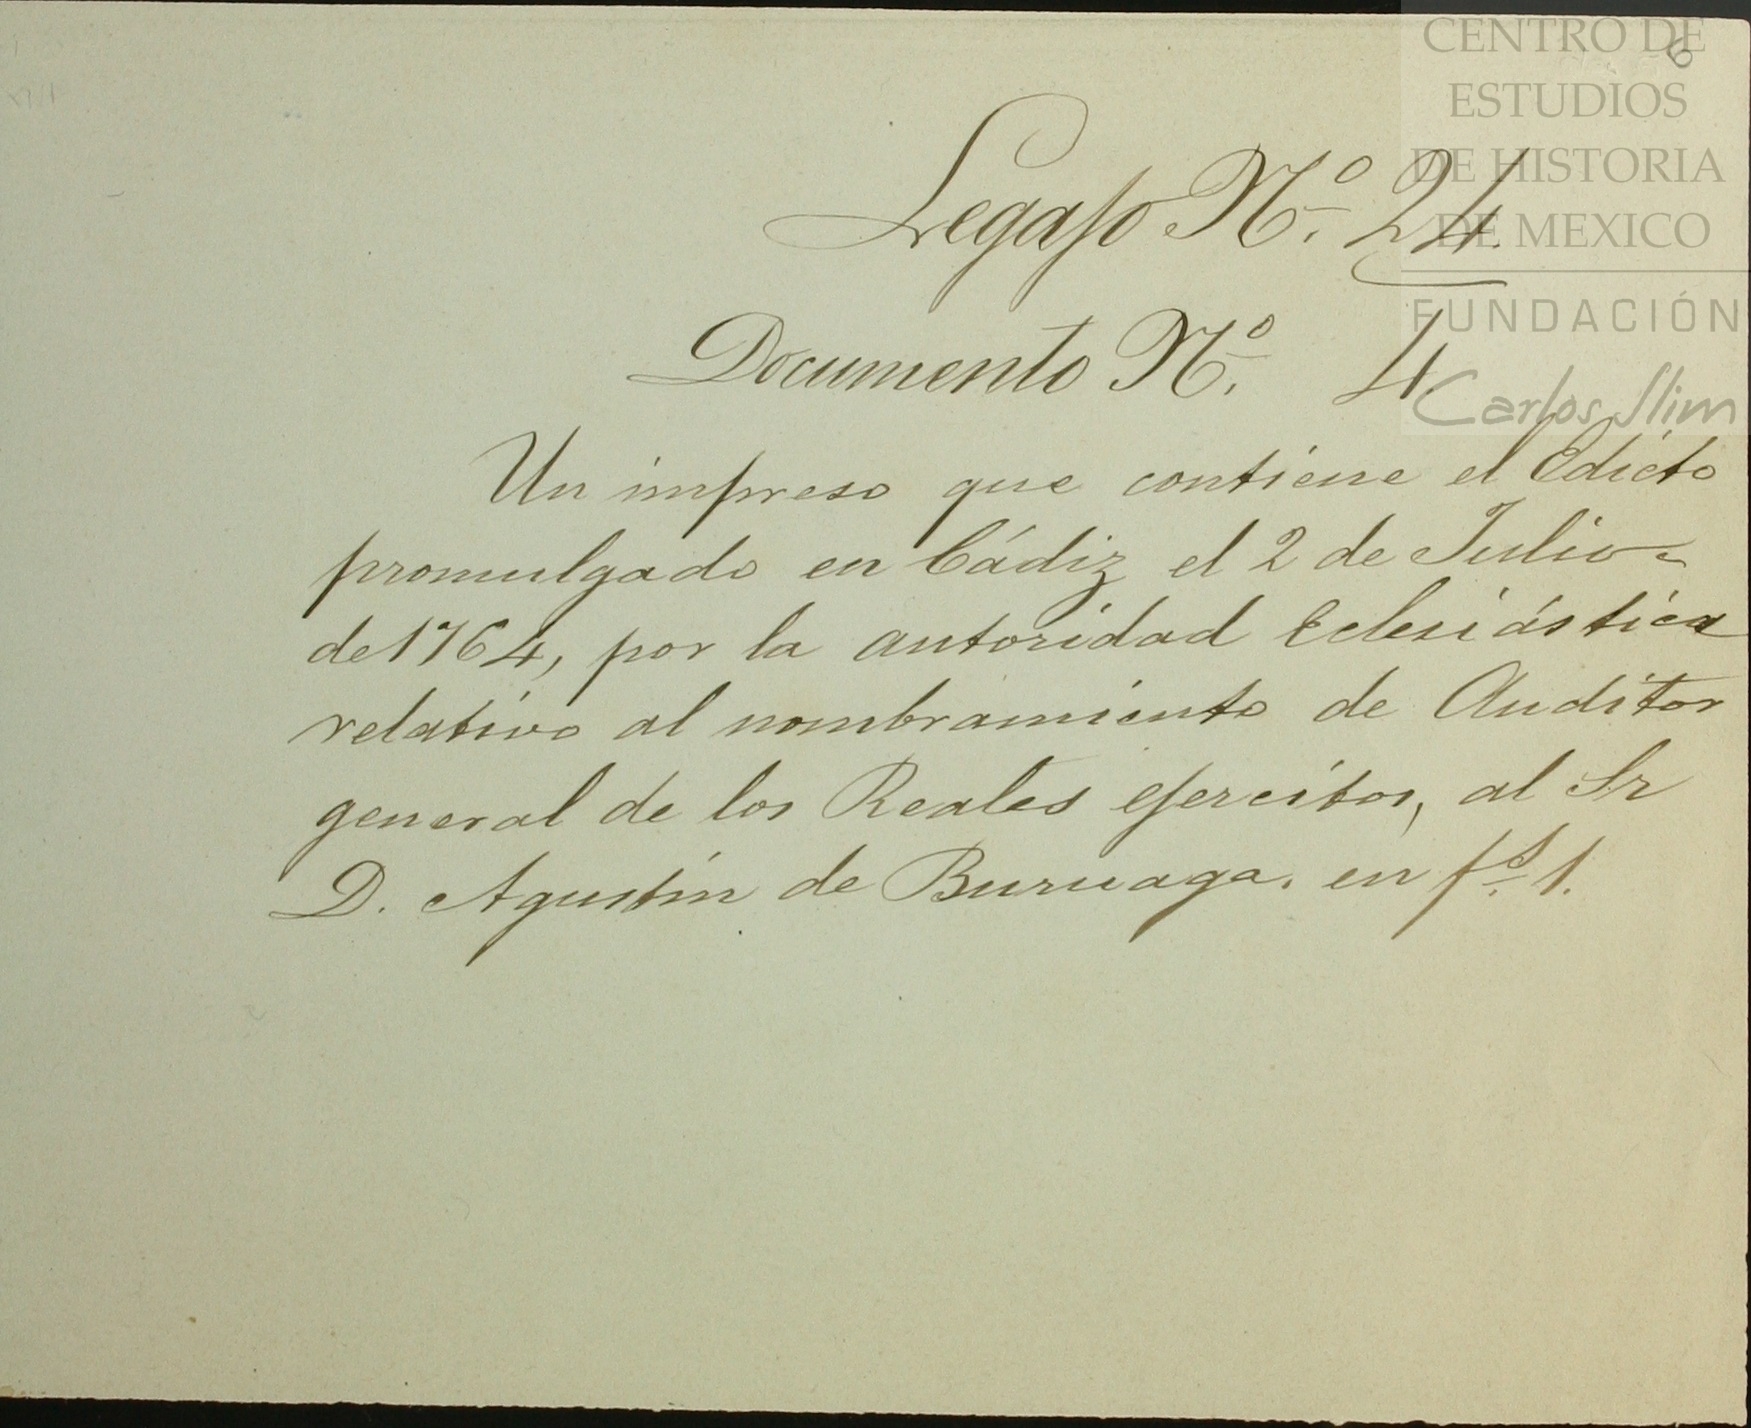 CENTRO DE
ESTUDIOS
DE HISTORIA
DE MEXICO
FUNDACIÓN
Carlos Slim
6
Legajo Nº. 24.
Documento Nº. 4
Un impreso que contiene el Edicto
promulgado en Cádiz el 2 de Julio
de 1764, por la autoridad Eclesiástica
relativo al nombramiento de Auditor
general de los Reales ejercitos, al Sr
D. Agustín de Buruaga. en fs. 1.